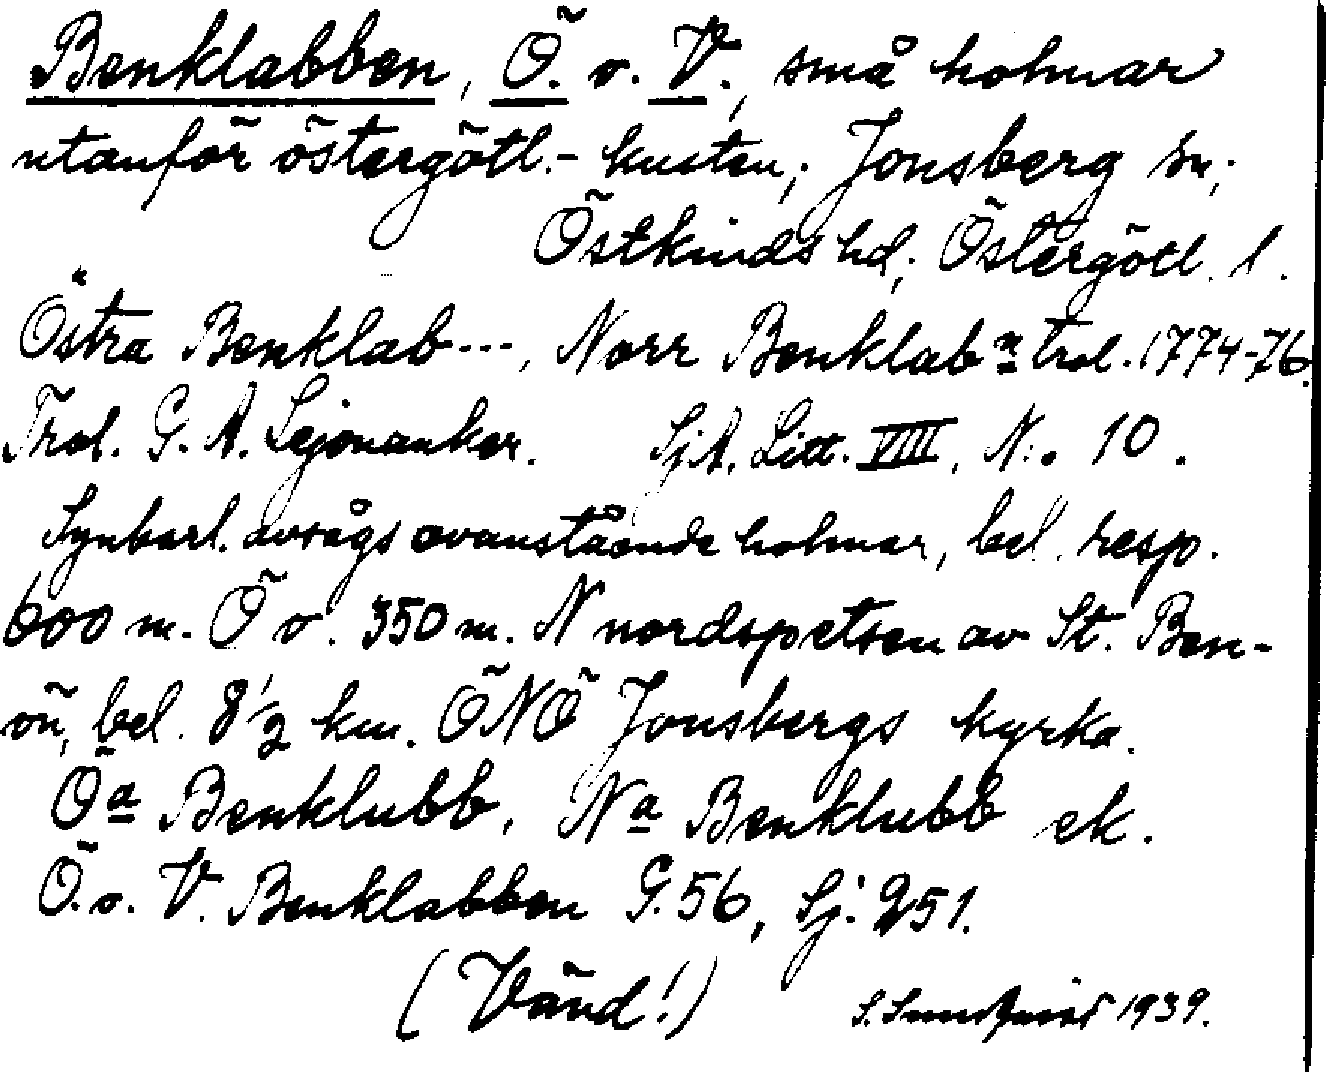 Benklabben, Ö. o. V., små holmar
utanför östergötl.- kusten; Jonsberg sn;
Östkinds hd; Östergötl. l.
Östra Benklab---, Norr Benklabn trol. 1774-76.
Trol. G. A. Lejonanker. SjA. Litt. VIII, N:o 10.
Synbarl. avsågs ovanstående holmar, bel. resp.
600 m. Ö o. 350 m. N nordspetsen av St. Ben-
ön, bel. 8 1/2 km. ÖNÖ Jonsbergs kyrka.
Öa Benklubb, Na Benklubb ek.
Ö. o. V. Benklabben G. 56, Sj: 251.
(Vänd!) S. 1939.